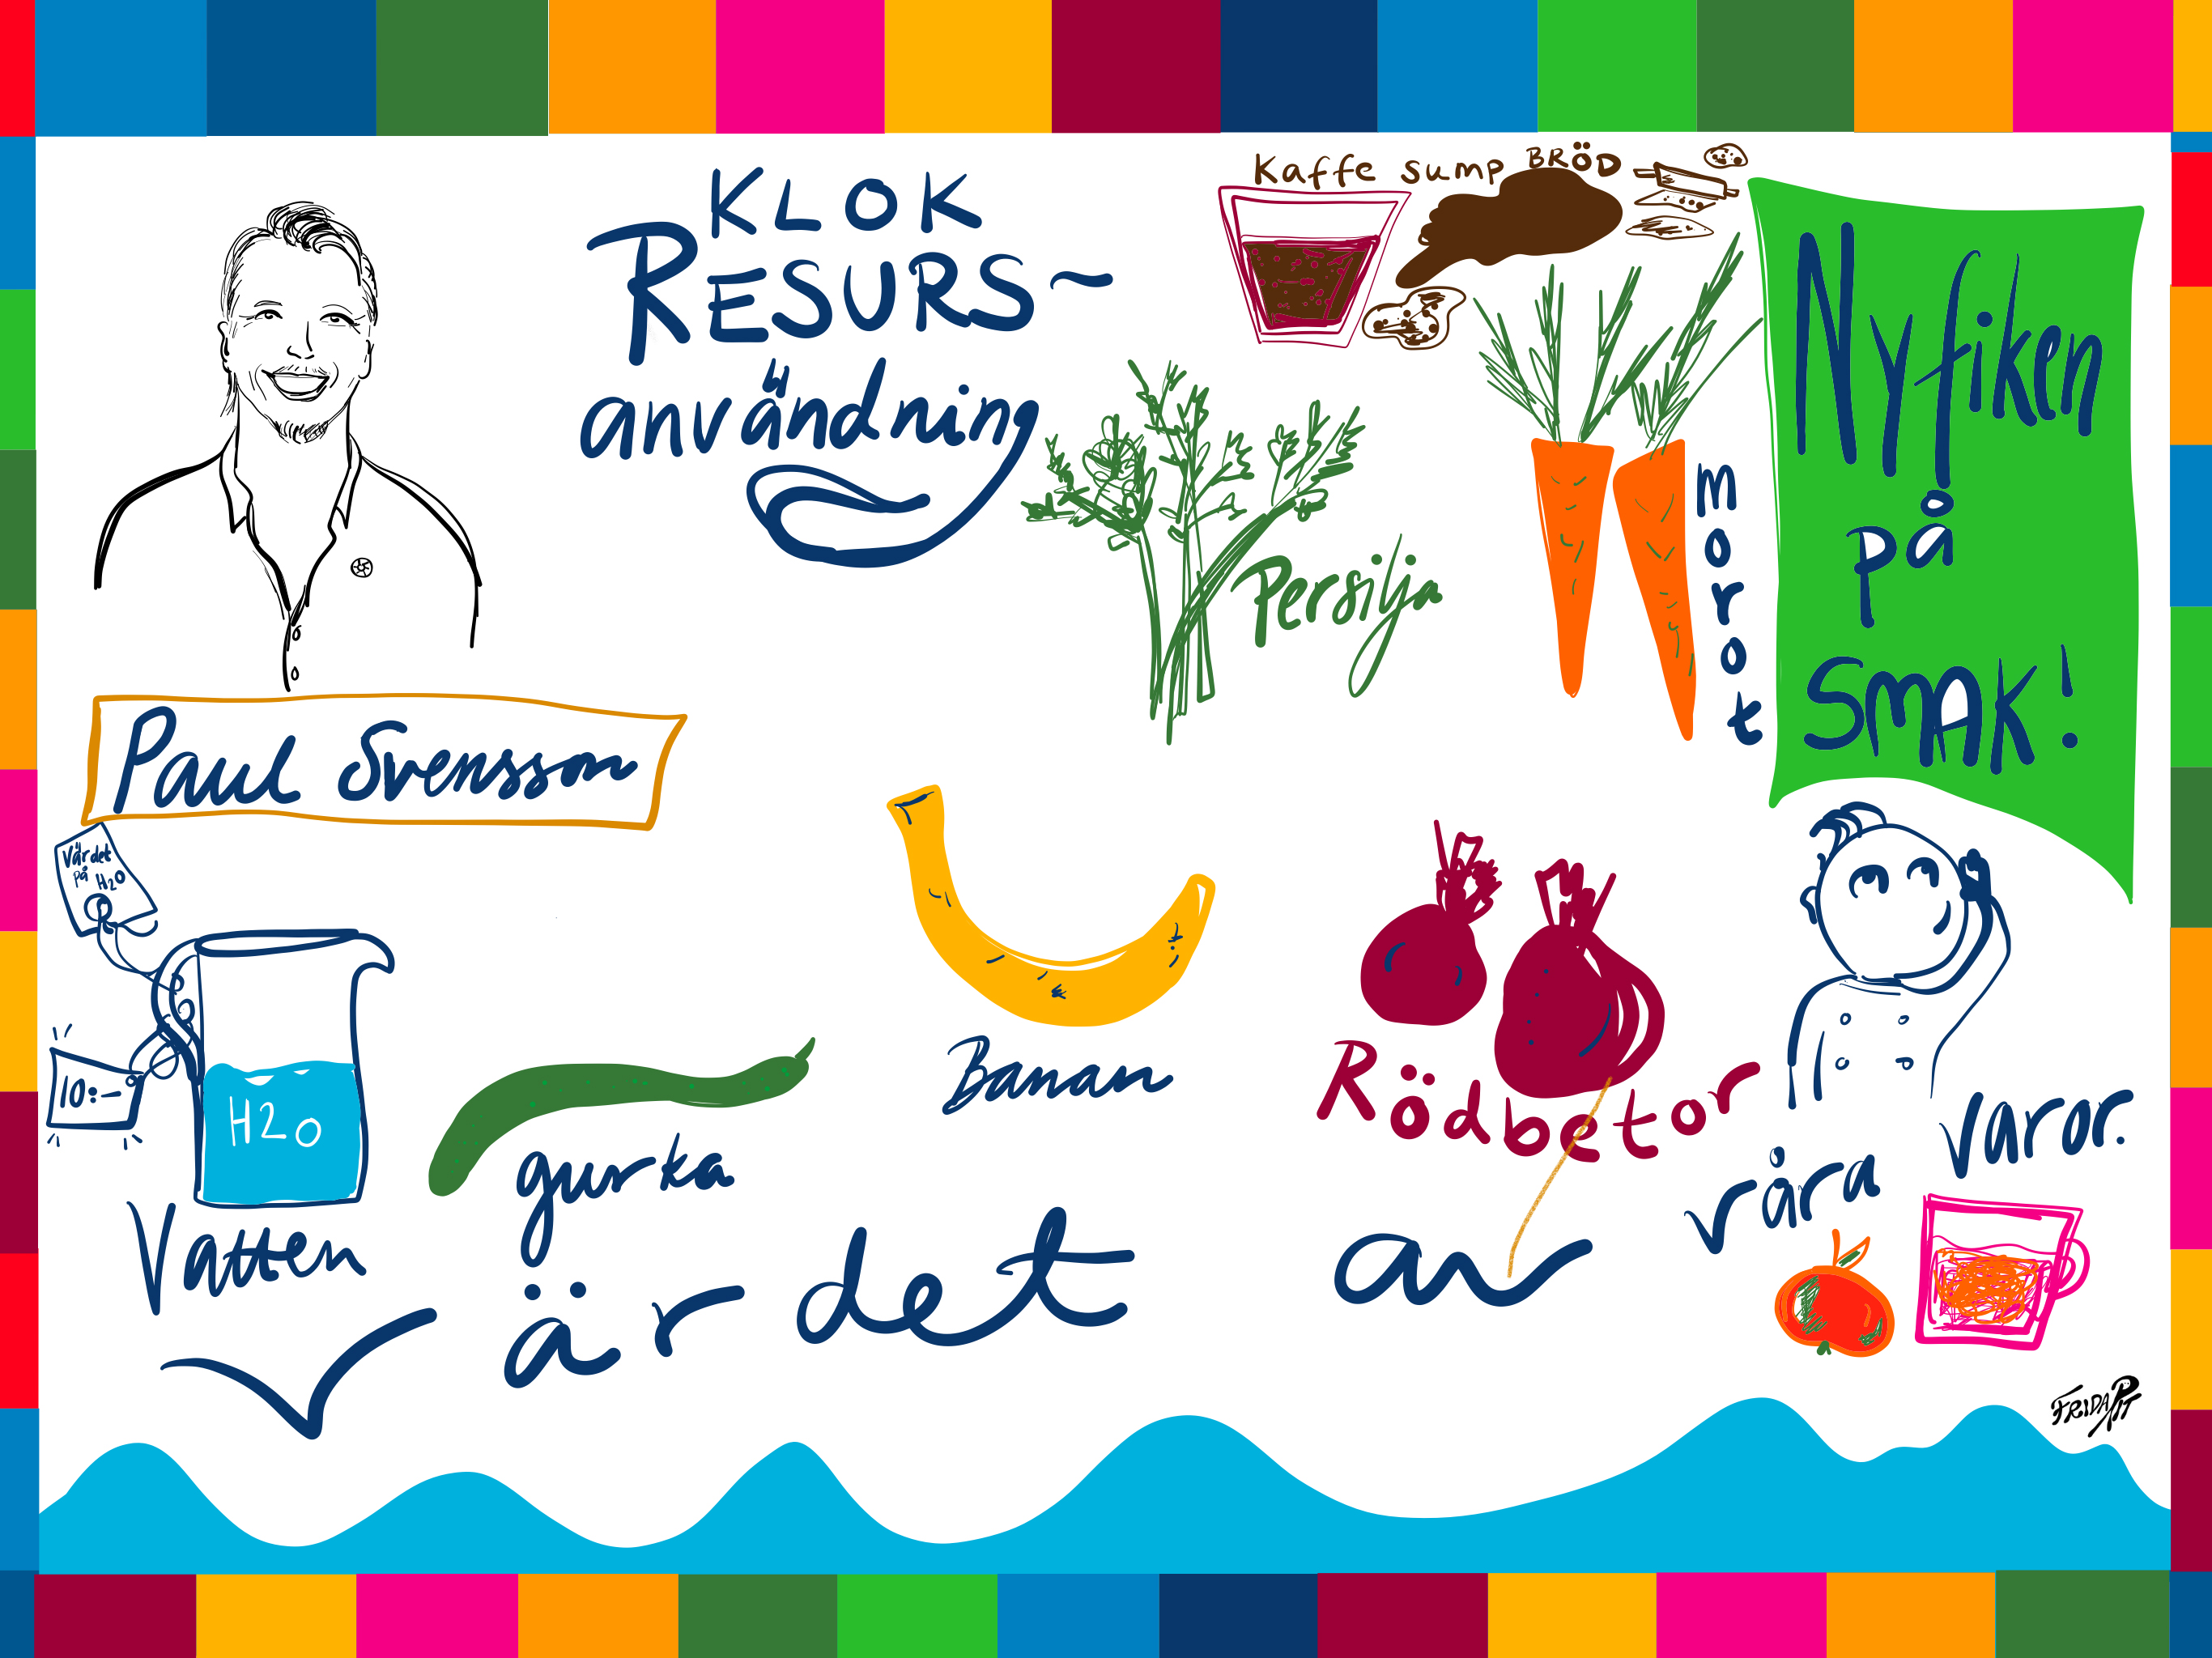 KLOK
RESURS~
användning
Kaffe sump
BRÖD
Nyfiken
på
SMAK!
Persilja
morot
Paul Svensson
Värdet
på H2O
10:-
H2O
Vatten
gurka
Banan
Rödbetor
är det
av
våra varor.
FRIDA PIT